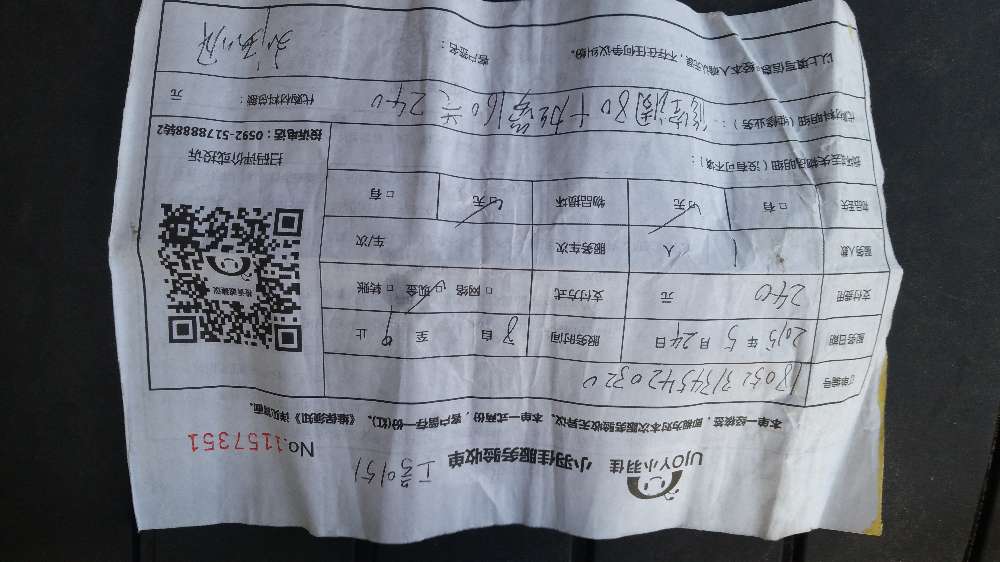 UJOY小羽佳 小羽佳服务验收单 工号0151
No.1157351
本单一经核签，即视为对本次服务验收无异议。 本单一式两份，客户留存一份(红)。《维保须知》详见背面。
订单编号 18052313454542032 0
服务日期 2015年5月24日 服务时间 8自 至9止
支付费用 240元 支付方式 □网络 ☑现金 □转账
服务人数 1人 服务车次 车/次
物品丢失 □有 ☑无 物品损坏 ☑无 □有
损坏丢失物品明细（没有可不填）：
代购材料明细（维修业务）： 80+ 160元 240
代购材料总额： 元
以上填写信息经本人确认无误，不存在任何争议纠纷。 客户签名：
客诉建议
扫码评价或投诉
投诉电话：0592-5178888转2